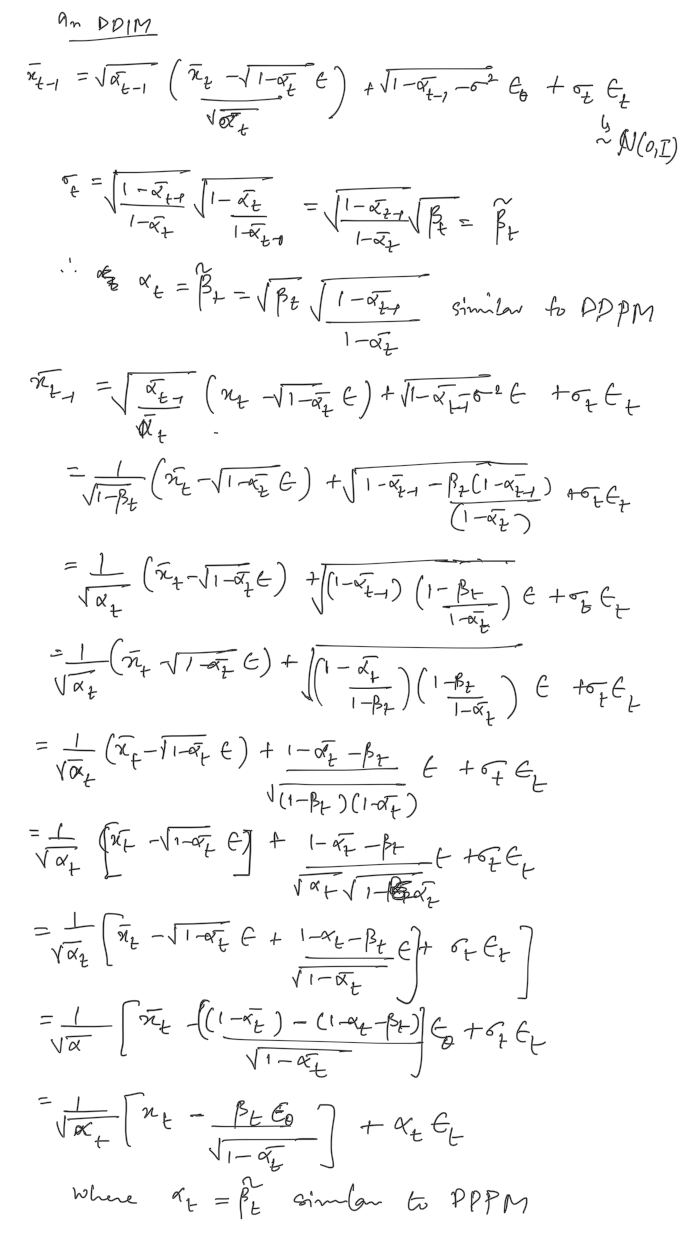 In DDIM
x̄_{t-1} = √ᾱ_{t-1} ( (x̄_t - √(1-ᾱ_t) ϵ) / √ᾱ_t ) + √(1-ᾱ_{t-1}-σ²) ϵ_θ + σ_t ϵ_t
↳ ~ N(0,I)
σ_t = √((1-ᾱ_{t-1})/(1-ᾱ_t)) √((1-ᾱ_t)/(1-ᾱ_{t-1})) = √((1-ᾱ_{t-1})/(1-ᾱ_t)) √β_t = β̃_t
∴ α_t = β̃_t = √β_t √((1-ᾱ_{t-1})/(1-ᾱ_t)) similar to DDPM
x̄_{t-1} = √(ᾱ_{t-1}/ᾱ_t) (x_t - √(1-ᾱ_t) ϵ) + √(1-ᾱ_{t-1}-σ²) ϵ + σ_t ϵ_t
= 1/√(1-β_t) (x̄_t - √(1-ᾱ_t) ϵ) + √(1-ᾱ_{t-1} - β_t(1-ᾱ_{t-1})/(1-ᾱ_t)) + σ_t ϵ_t
= 1/√α_t (x̄_t - √(1-ᾱ_t) ϵ) + √((1-ᾱ_{t-1}) (1 - β_t/(1-ᾱ_t))) ϵ + σ_t ϵ_t
= 1/√α_t (x̄_t - √(1-ᾱ_t) ϵ) + √((1 - ᾱ_t/(1-β_t)) (1 - β_t/(1-ᾱ_t))) ϵ + σ_t ϵ_t
= 1/√α_t (x̄_t - √(1-ᾱ_t) ϵ) + (1-ᾱ_t-β_t)/√((1-β_t)(1-ᾱ_t)) ϵ + σ_t ϵ_t
= 1/√α_t [x̄_t - √(1-ᾱ_t) ϵ] + (1-ᾱ_t-β_t)/(√α_t √(1-ᾱ_t)) ϵ + σ_t ϵ_t
= 1/√α_t [x̄_t - √(1-ᾱ_t) ϵ + (1-α_t-β_t)/√(1-ᾱ_t) ϵ] + σ_t ϵ_t]
= 1/√α [x̄_t - ((1-ᾱ_t) - (1-α_t-β_t))/√(1-ᾱ_t)] ϵ_θ + σ_t ϵ_t
= 1/√α_t [x_t - β_t ϵ_θ/√(1-ᾱ_t)] + α_t ϵ_t
where α_t = β̃_t similar to DDPM